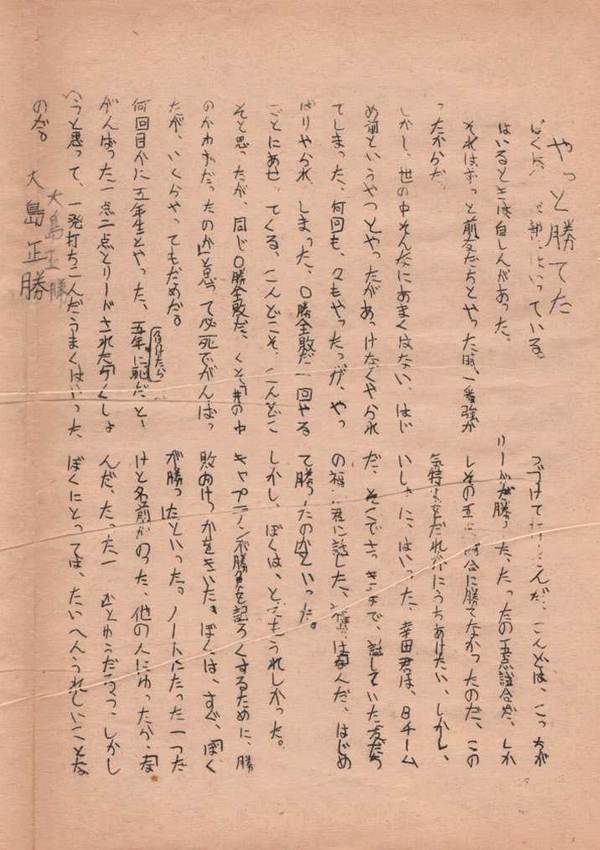 やっと勝てた
ぼくは、部にはいっている。
はいるときは自しんがあった。
それはずっと前友だちとやった時、一番強か
ったからだ。
しかし、世の中そんなにあまくはない、はじ
め前というやつとやったがあっけなくやられ
てしまった、何回も、々もやったが、やっ
ぱりやられしまった、〇勝全敗だ一回やる
ごとにあせってくる、こんどこそ、こんどこ
そと思ったが、同じ〇勝全敗だ、くそ「井の中
のかわずだったのか」と思って必死でがんばっ
たが、いくらやってもだめだ。
何回目かに五年生とやった、五年に負けたら恥だと、
がんばった一点二点とリードされた「ちくしょ
う」と思って、一発打ちこんだうまくはいった、
つづけて打ちこんだ、こんどは、こっちが
リードだ勝った、たったの試合だ、しか
しその試合に勝てなかったのだ、この
気持をだれかにうちあけたい、しかし、
いしゃに、はいった、幸田君は、Bチーム
だ、そこでさっきまで、話していた友だち
の福君に話した、福は「なんだ、はじめ
て勝ったのか」といった。
しかし、ぼくは、とてもうれしかった。
キャプテンが勝負を記ろくするために、勝
敗のけっかをきいた。ぼくは、すぐ、「ぼく
が勝った」といった。ノートにたった一つだ
けど名前がのった、他の人にゆったが、「な
んだ、たった一とゆうだろう、しかし
ぼくにとっては、たいへんうれしいことな
のだ。
大島正勝
大島正勝